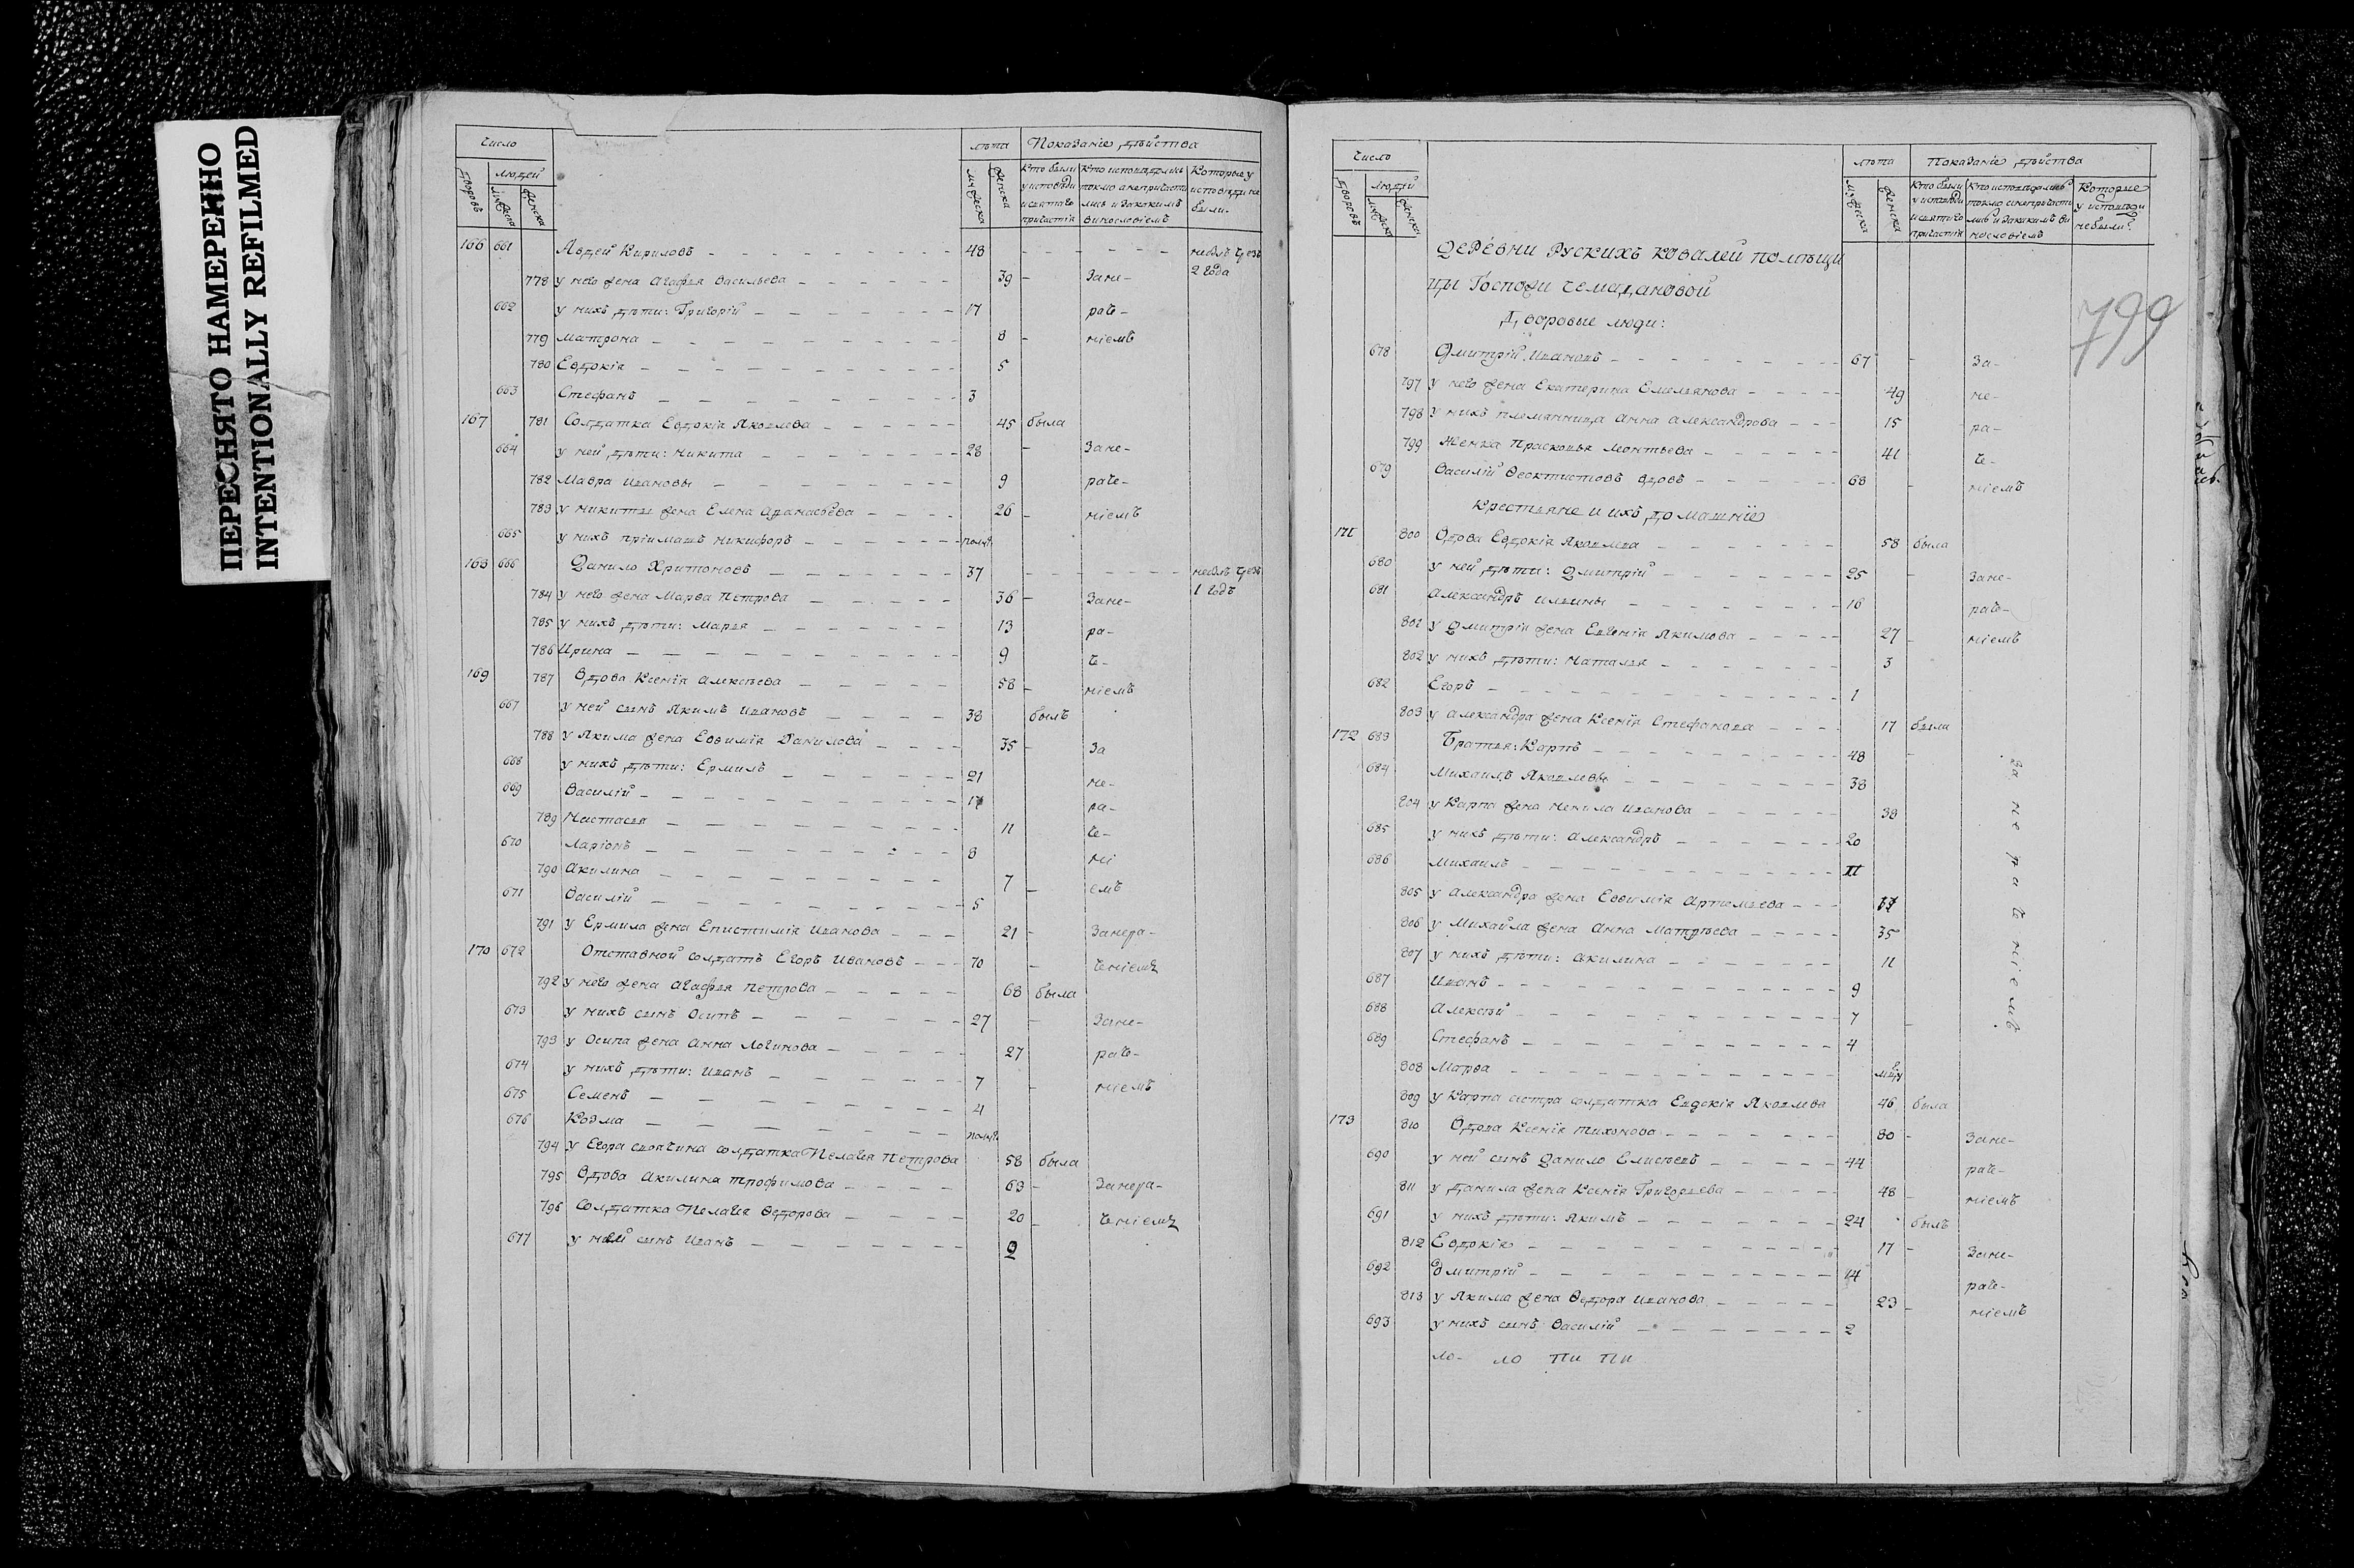 ПЕРЕСНЯТО НАМЕРЕННО
INTENTIONALLY REFILMED
Число
лѣта Показаніе дѣйства
людей
дворовъ
мужеска
женска
мужеска
женска
Кто были у исповѣди и святаго причастія
Кто исповѣдались токмо а непричастились и закакимъ винословіемъ
Которые у исповѣди не были
166 661 Авдей Кириловъ 43 небылъ чрезъ
778 у него жена Агафья Васильева 39 Зане- 2 года
662 у нихъ дѣти: Григорій 17 раче-
779 Матрона 8 ніемъ
780 Евдокія 5
663 Стефанъ 3
167 781 Солдатка Евдокія Яковлева 45 была
664 у ней дѣти: Никита 28 Зане-
782 Мавра Ивановы 9 раче-
783 у Никиты жена Елена Афанасьева 26 ніемъ
665 у нихъ пріимашъ Никифоръ полъг.
168 666 Данило Хритоновъ 37 небылъ чрезъ
784 у него жена Марѳа Петрова 36 Зане- 1 годъ
785 у нихъ дѣти: Марья 13 ра-
786 Ирина 9 ч-
169 787 Вдова Ксенія Алексѣева 58 ніемъ
667 у ней сынъ Якимъ Ивановъ 38 былъ
788 у Якима жена Евѳимія Данилова 35 За
668 у нихъ дѣти: Ермилъ 21 не-
669 Василій 17 ра-
789 Настасья 11 че-
670 Ларіонъ 8 ні
790 Акилина 7 емъ
671 Василій 5
791 у Ермила жена Епистимія Иванова 21 Занера-
170 672 Отставной солдатъ Егоръ Ивановъ 70 ченіемъ
792 у него жена Агафья Петрова 68 была
673 у нихъ сынъ Осипъ 27 Зане-
793 у Осипа жена Анна Логинова 27 раче-
674 у нихъ дѣти: Иванъ 7 ніемъ
675 Семенъ 4
676 Козма полъг.
794 у Егора своячина солдатка Пелагея Петрова 58 была
795 Вдова Акилина Трофимова 63 Занера-
796 Солдатка Пелагея Ѳедорова 20 ченіемъ
677 у ней сынъ Иванъ 9
Число
лѣта Показаніе дѣйства
людій
дворовъ
мужеска
женска
мужеска
женска
Кто были у исповѣди и святаго причастія
Кто исповѣдались токмо а непричастились и закакимъ винословіемъ
Которые у исповѣди небыли
799
Деревни Рускихъ Ковалей помѣщи
цы Госпожи Чемадановой
Дворовые люди:
678 Дмитрій Ивановъ 67 За-
797 у него жена Екатерина Емельянова 49 не-
798 у нихъ племянница Анна Александрова 15 ра-
799 Женка Прасковья Леонтьева 41 че-
679 Василій Ѳеоктистовъ вдовъ 68 ніемъ
Крестьяне и ихъ домашніе
171 800 Вдова Евдокія Яковлева 58 была
680 у ней дѣти: Дмитрій 25 Зане-
681 Александръ Ильины 16 раче-
801 у Дмитрія жена Евгенія Якимова 27 ніемъ
802 у нихъ дѣти: Наталья 3
682 Егоръ 1
803 у Александра жена Ксенія Стефанова 17 была
172 683 Братья: Карпъ 48 занераченіемъ
684 Михаилъ Яковлевы 38
804 у Карпа жена Ненила Иванова 38
685 у нихъ дѣти: Александръ 20
686 Михаилъ 11
805 у Александра жена Евѳимія Артемьева 17
806 у Михайла жена Анна Матвѣева 35
807 у нихъ дѣти: Акилина 11
687 Иванъ 9
688 Алексѣй 7
689 Стефанъ 4
808 Марѳа
809 у Карпа сестра солдатка Евдокія Яковлева 46 была
173 810 Вдова Ксенія Тихонова 80 Зане-
690 у ней сынъ Данило Елисѣевъ 44 раче-
811 у Данила жена Ксенія Григорьева 48 ніемъ
691 у нихъ дѣти: Якимъ 24 былъ
812 Евдокія 17 Зане-
692 Дмитрій 14 раче-
813 у Якима жена Ѳедора Иванова 23 ніемъ
693 у нихъ сынъ Василій 2